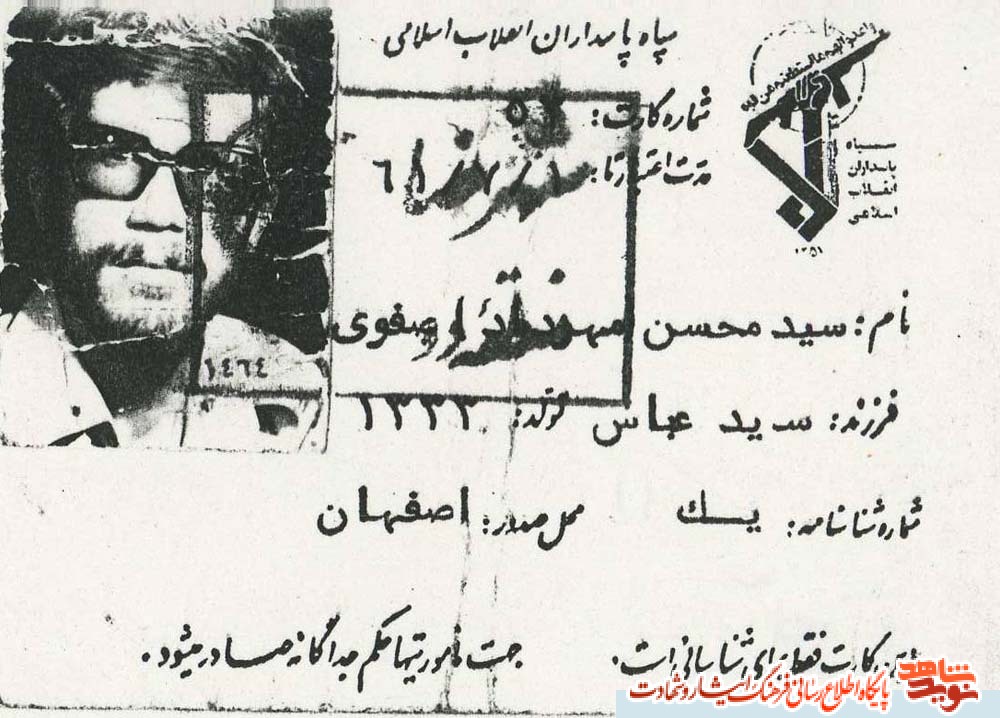 سپاه پاسداران انقلاب اسلامی
سپاه
پاسداران
انقلاب
اسلامی
شماره کارت:
مدت اعتبار تا:
نام: سید محسن صفوی
فرزند: سید عباس تولد: ۱۳۳۲
شماره شناسنامه: یک محل صدور: اصفهان
این کارت فقط برای شناسائی است.
جهت مأموریتها حکم جداگانه صادر میشود.
۱٤٦٤
نوید شاهد
پایگاه اطلاع رسانی فرهنگ ایثار و شهادت